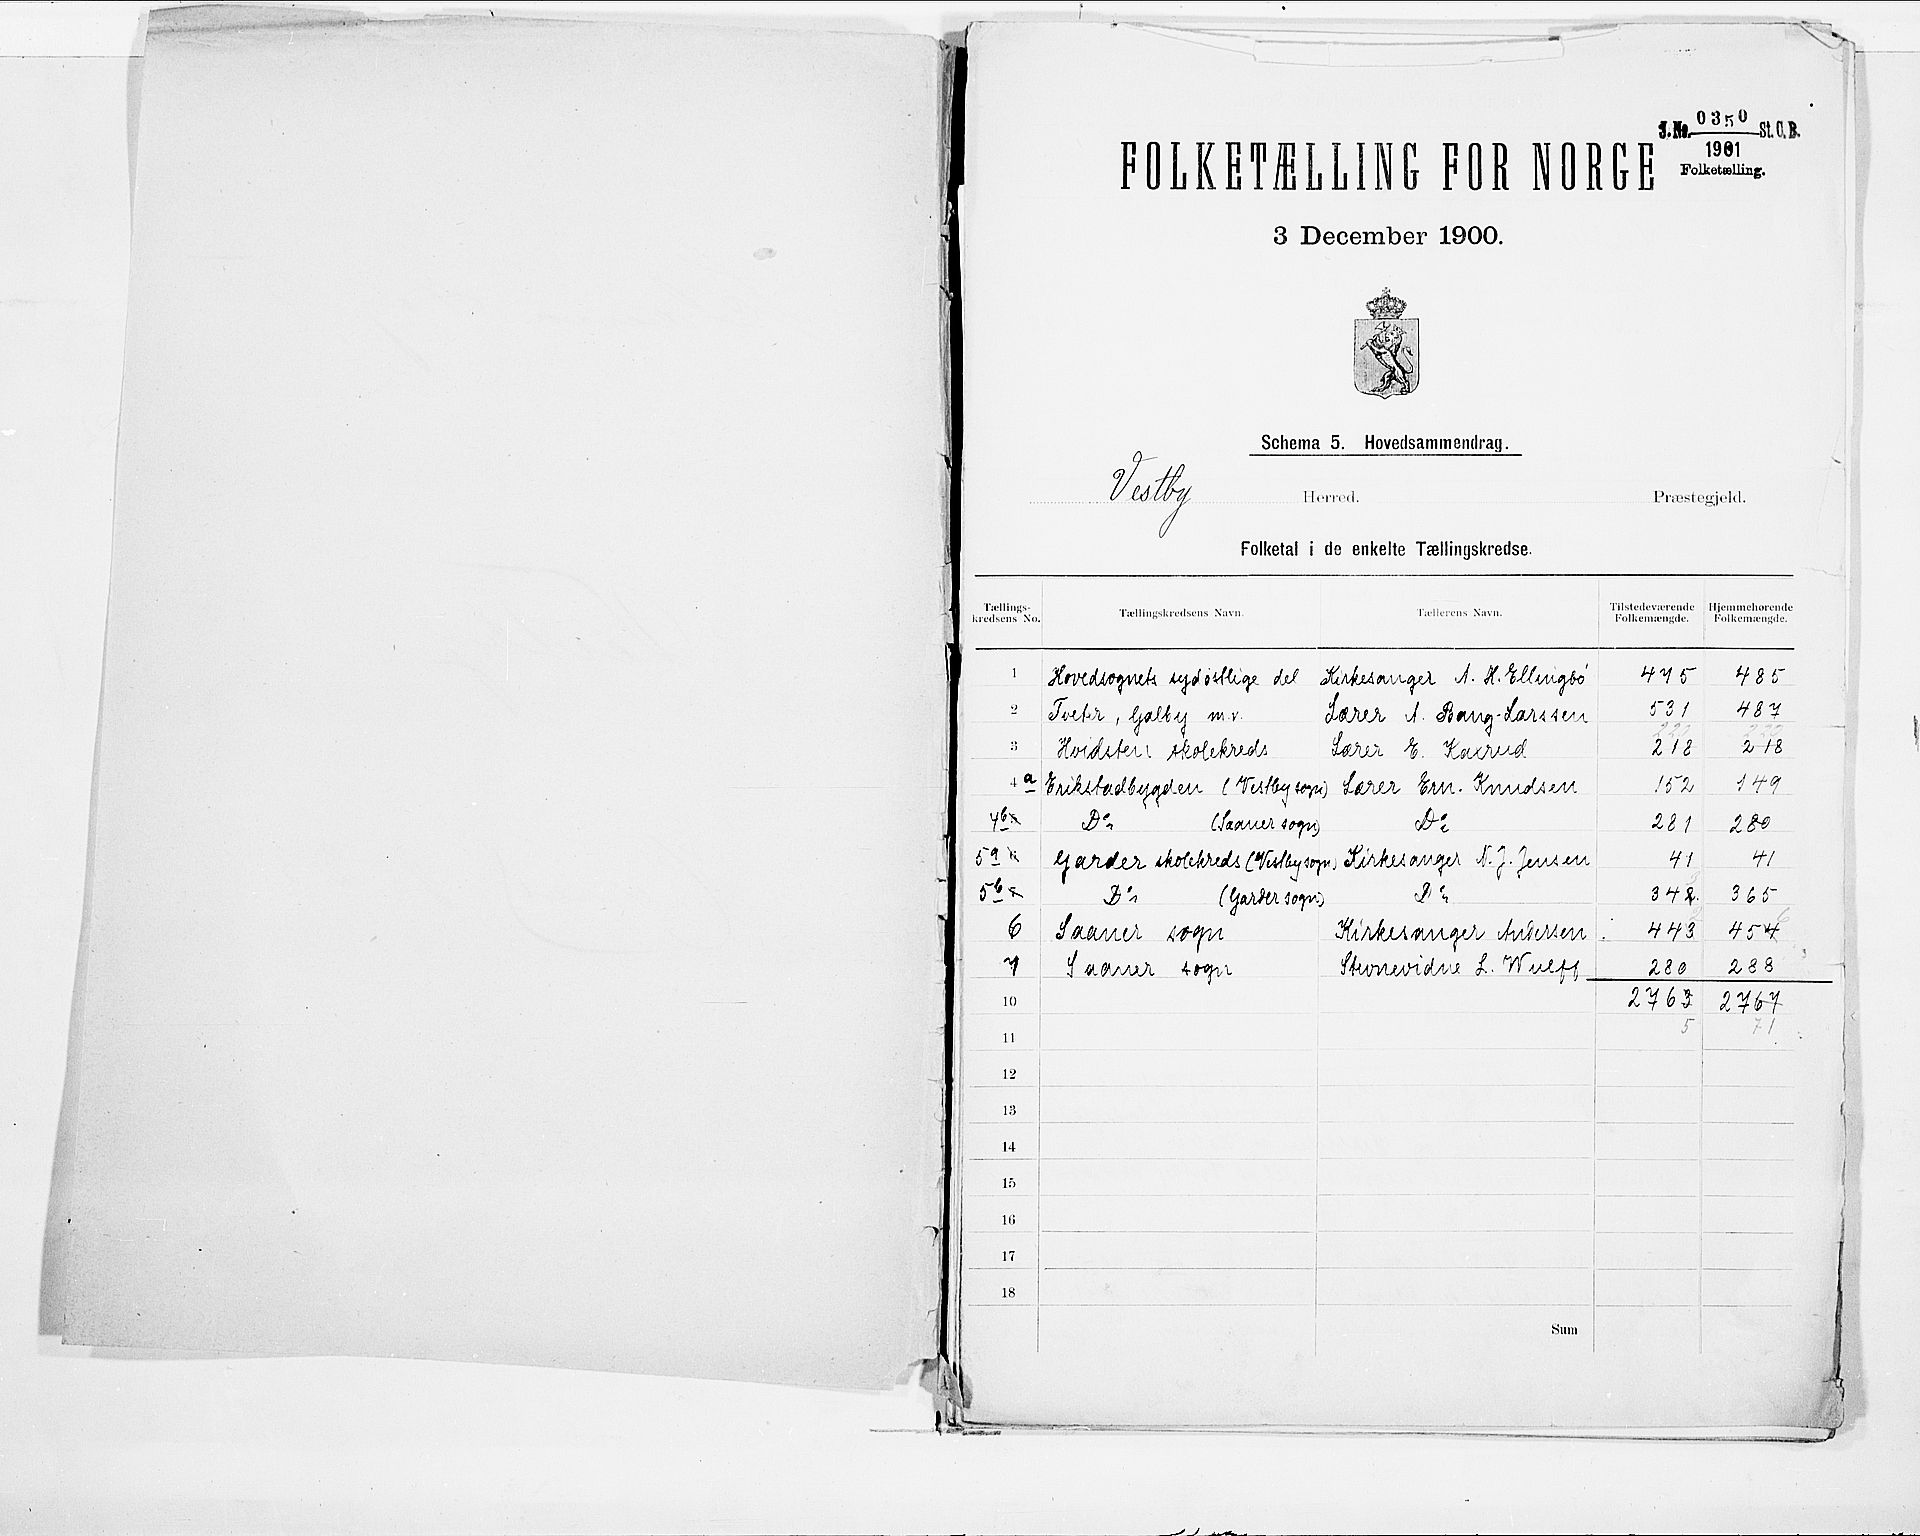 J. No. 0350 St. C. B.
1901
Folketælling.
FOLKETÆLLING FOR NORGE
3 December 1900.
Schema 5. Hovedsammendrag.
Vestby Herred. Præstegjeld.
Folketal i de enkelte Tællingskredse.
Tællings-kredsens No. Tællingskredsens Navn. Tællerens Navn. Tilstedeværende Folkemængde. Hjemmehørende Folkemængde.
1 Hovedsognets sydøstlige del Kirkesanger A. H. Ellingbö 475 485
2 Tveter, Galby m.v. Lærer A. Bang-Larssen 531 487
3 Hvidsten skolekreds Lærer E. Kaxrud 218 218
4 a Erikstadbygden (Vestby sogn) Lærer Ern. Knudsen 152 149
4 b Do (Saaner sogn) Do 281 280
5 a Garder skolekreds (Vestby sogn) Kirkesanger N. J. Jensen 41 41
5 b Do (Garder sogn) Do 342 365
6 Saaner sogn Kirkesanger Andersen 443 454
7 Saaner sogn Stevnevidne L. Wulff 280 288
10 2763 2767
11 5 71
12
13
14
15
16
17
18
Sum